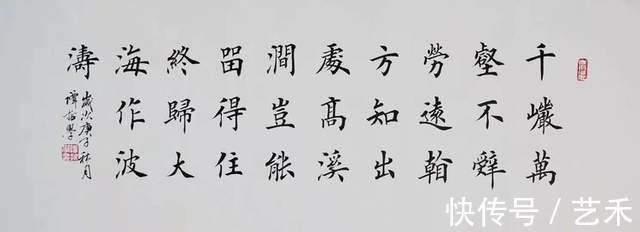 千巖萬
壑不辭
勞遠看
方知出
處高溪
澗豈能
留得住
終歸大
海作波
濤
歲次庚子秋月
快传号 / 艺禾